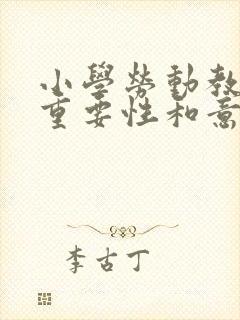 小學勞動教
重要性和意
李古丁